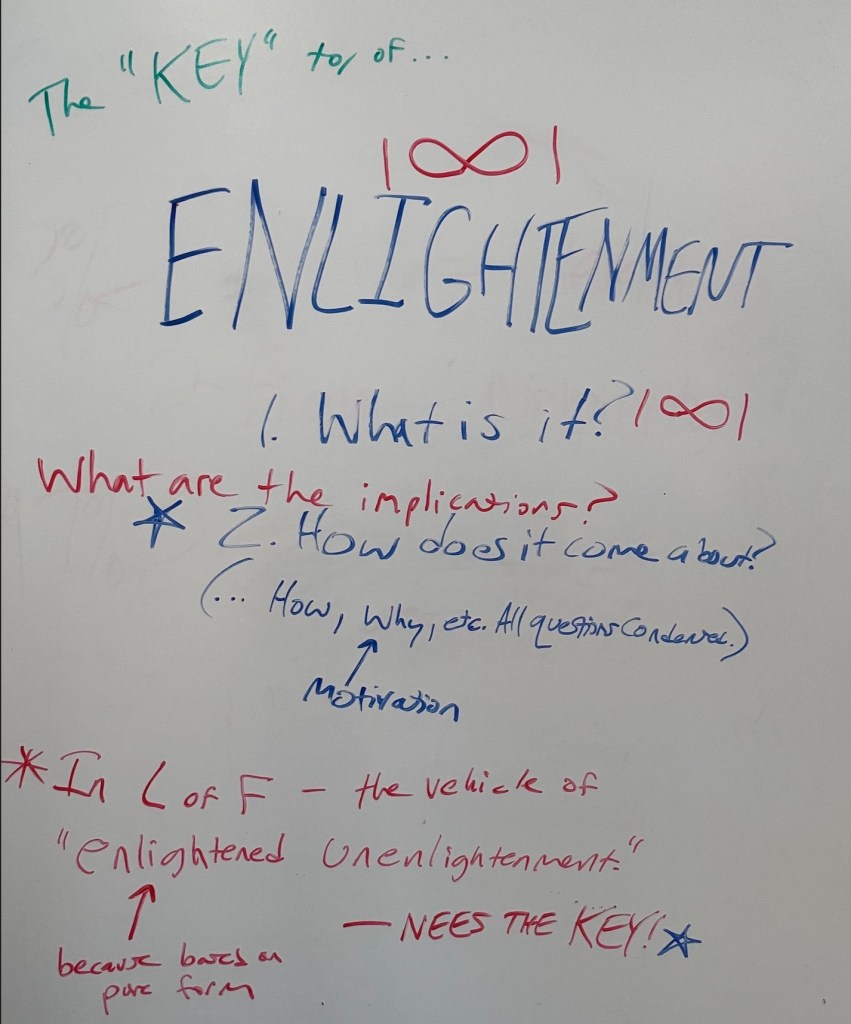 The "KEY" to/of...
1∞1
ENLIGHTENMENT
1. What is it? 1∞1
What are the implications?
★ 2. How does it come about?
(... How, Why, etc. All questions Condensed.)
↑
Motivation
* In L of F – the vehicle of
"enlightened Unenlightenment."
↑
— NEES THE KEY! ★
because bases on
pure form